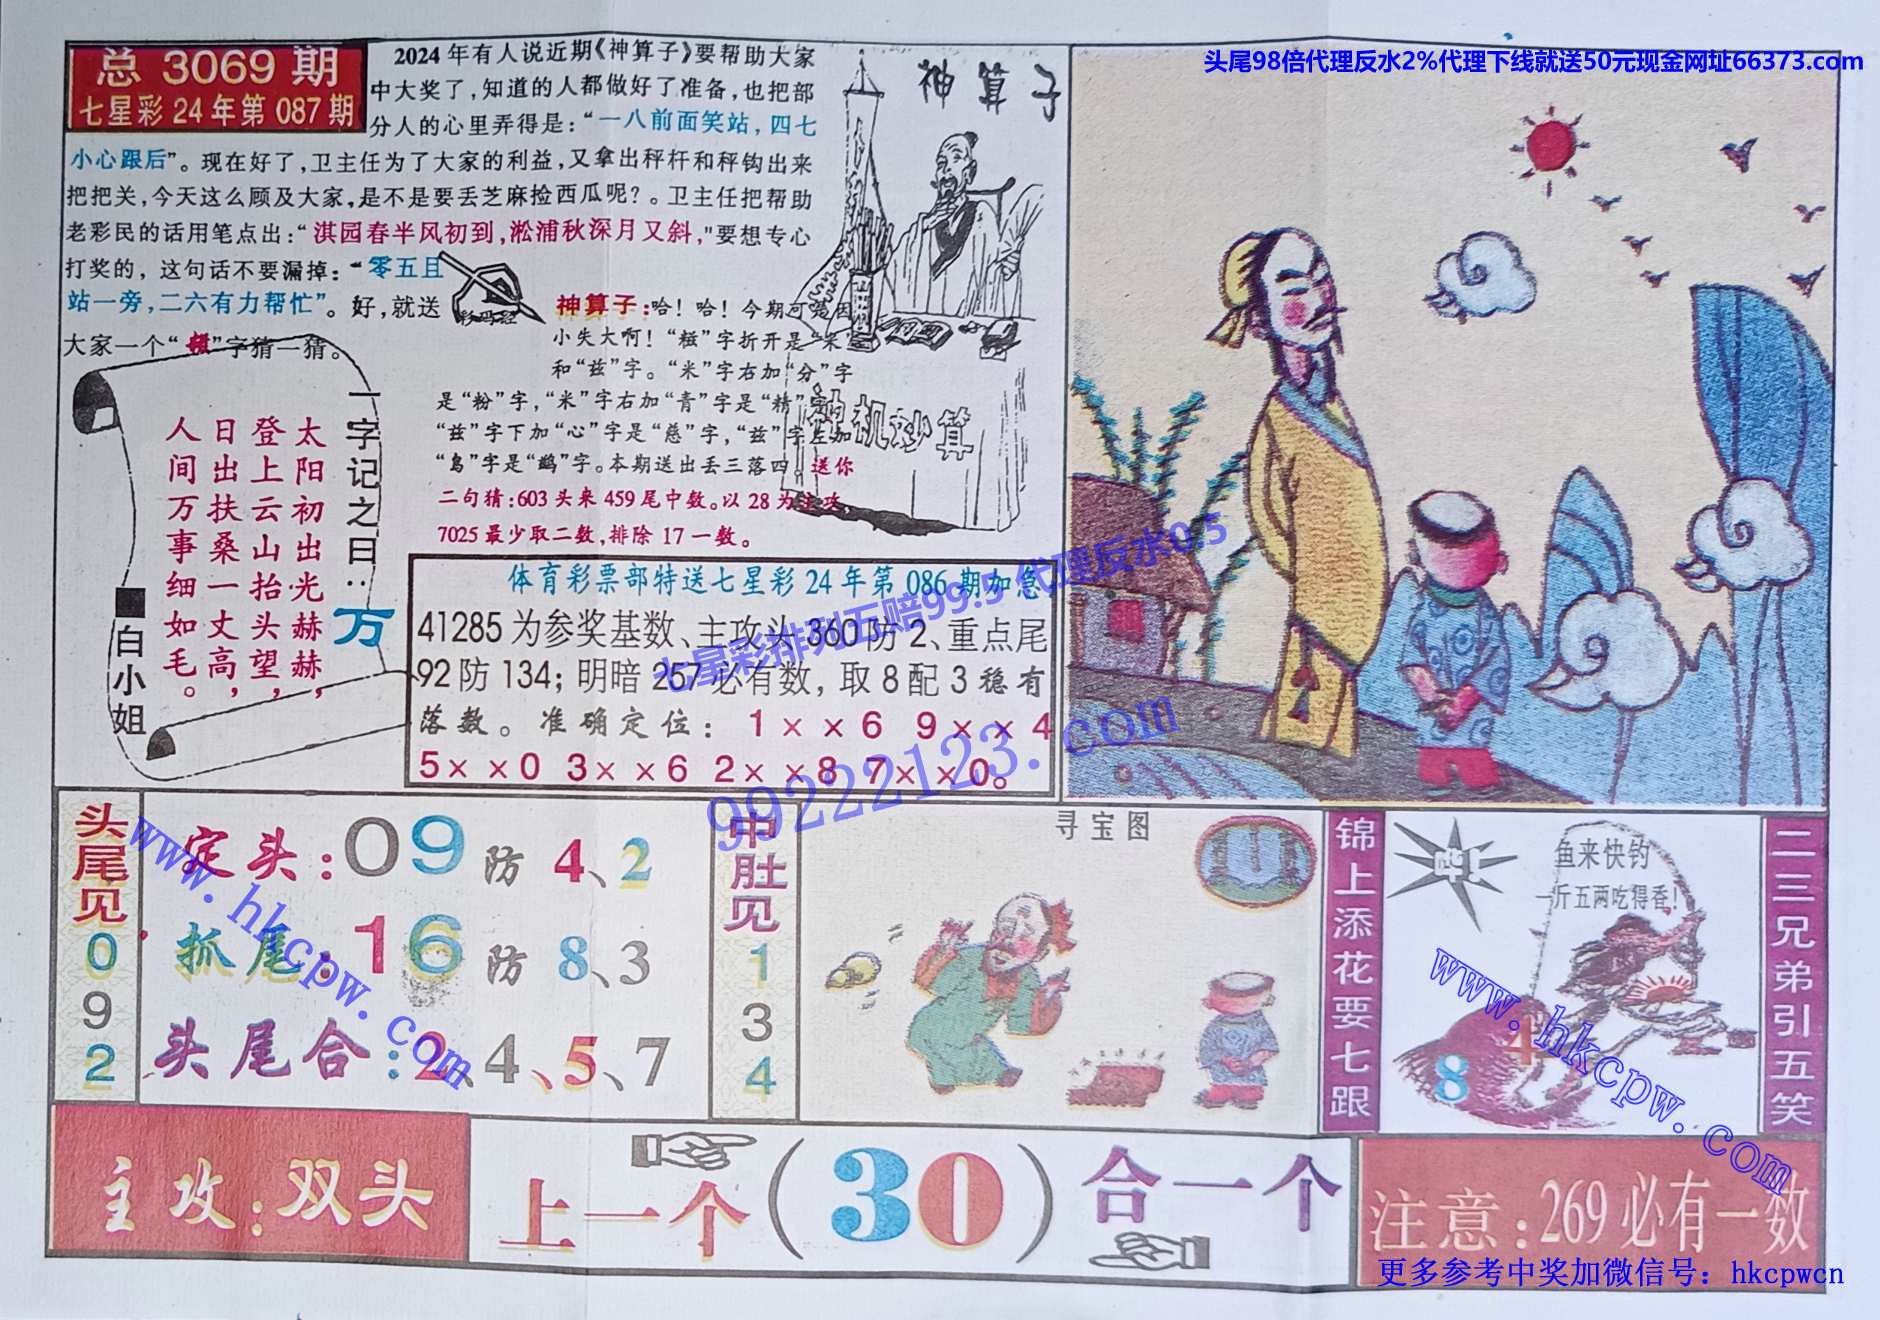 总 3069 期
七星彩 24 年第 087 期
2024 年有人说近期《神算子》要帮助大家
中大奖了，知道的人都做好了准备，也把部
分人的心里弄得是：“一八前面笑站，四七
小心跟后”。现在好了，卫主任为了大家的利益，又拿出秤杆和秤钩出来
把把关，今天这么顾及大家，是不是要丢芝麻捡西瓜呢？。卫主任把帮助
老彩民的话用笔点出：“淇园春半风初到，淞浦秋深月又斜，”要想专心
打奖的，这句话不要漏掉：“零五且
站一旁，二六有力帮忙”。好，就送
大家一个“糍”字猜一猜。
神算子
神机妙算
神算子：哈！哈！今期可是因
小失大啊！“糍”字折开是“米”
和“兹”字。“米”字右加“分”字
是“粉”字，“米”字右加“青”字是“精”字
“兹”字下加“心”字是“慈”字，“兹”字左加
“鸟”字是“鹚”字。本期送出丢三落四。送你
二句猜：603 头来 459 尾中数。以 28 为主攻，
7025 最少取二数，排除 17 一数。
一字记之曰：万
太阳初出光赫赫，
登上云山抬头望，
日出扶桑一丈高，
人间万事细如毛。
■白小姐
体育彩票部特送七星彩 24 年第 086 期加急
41285 为参奖基数、主攻头 360 防 2、重点尾
92 防 134；明暗 257 必有数，取 8 配 3 稳有
落数。准确定位：1××6 9××4
5××0 3××6 2××8 7××0。
头尾98倍代理反水2%代理下线就送50元现金网址66373.com
七星彩排列五赔99.5 代理反水0.5
99222123.com
头尾见092
定头：09 防 4、2
抓尾：16 防 8、3
头尾合：2、4、5、7
www.hkcpw.com
中肚见134
寻宝图
锦上添花要七跟
鱼来快钓
一斤五两吃得香！
8
4
www.hkcpw.com
二三兄弟引五笑
主攻：双头
上一个（30）合一个
注意：269 必有一数
更多参考中奖加微信号：hkcpwcn